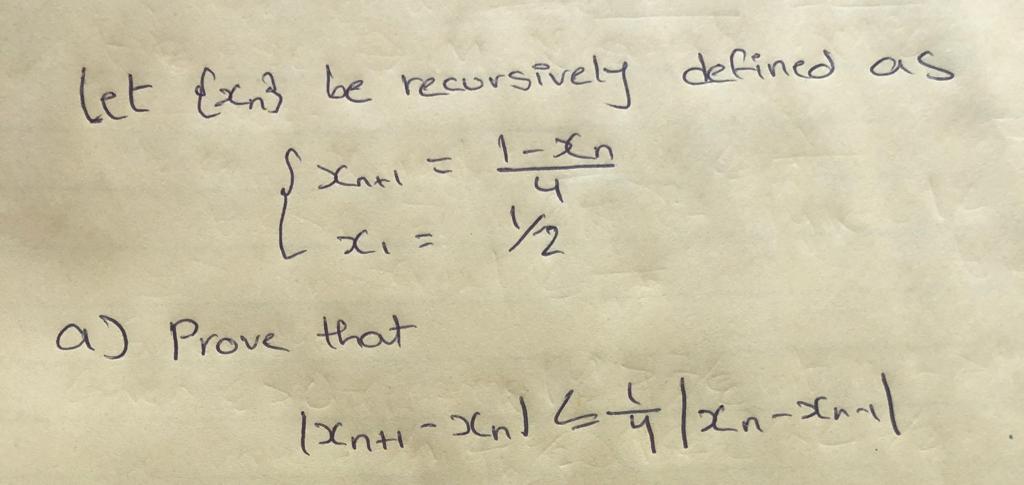 Let {xn} be recursively defined as
{ xn+1 = (1-xn)/4
x1 = 1/2
a) Prove that
|xn+1 - xn| ≤ 1/4 |xn - xn-1|